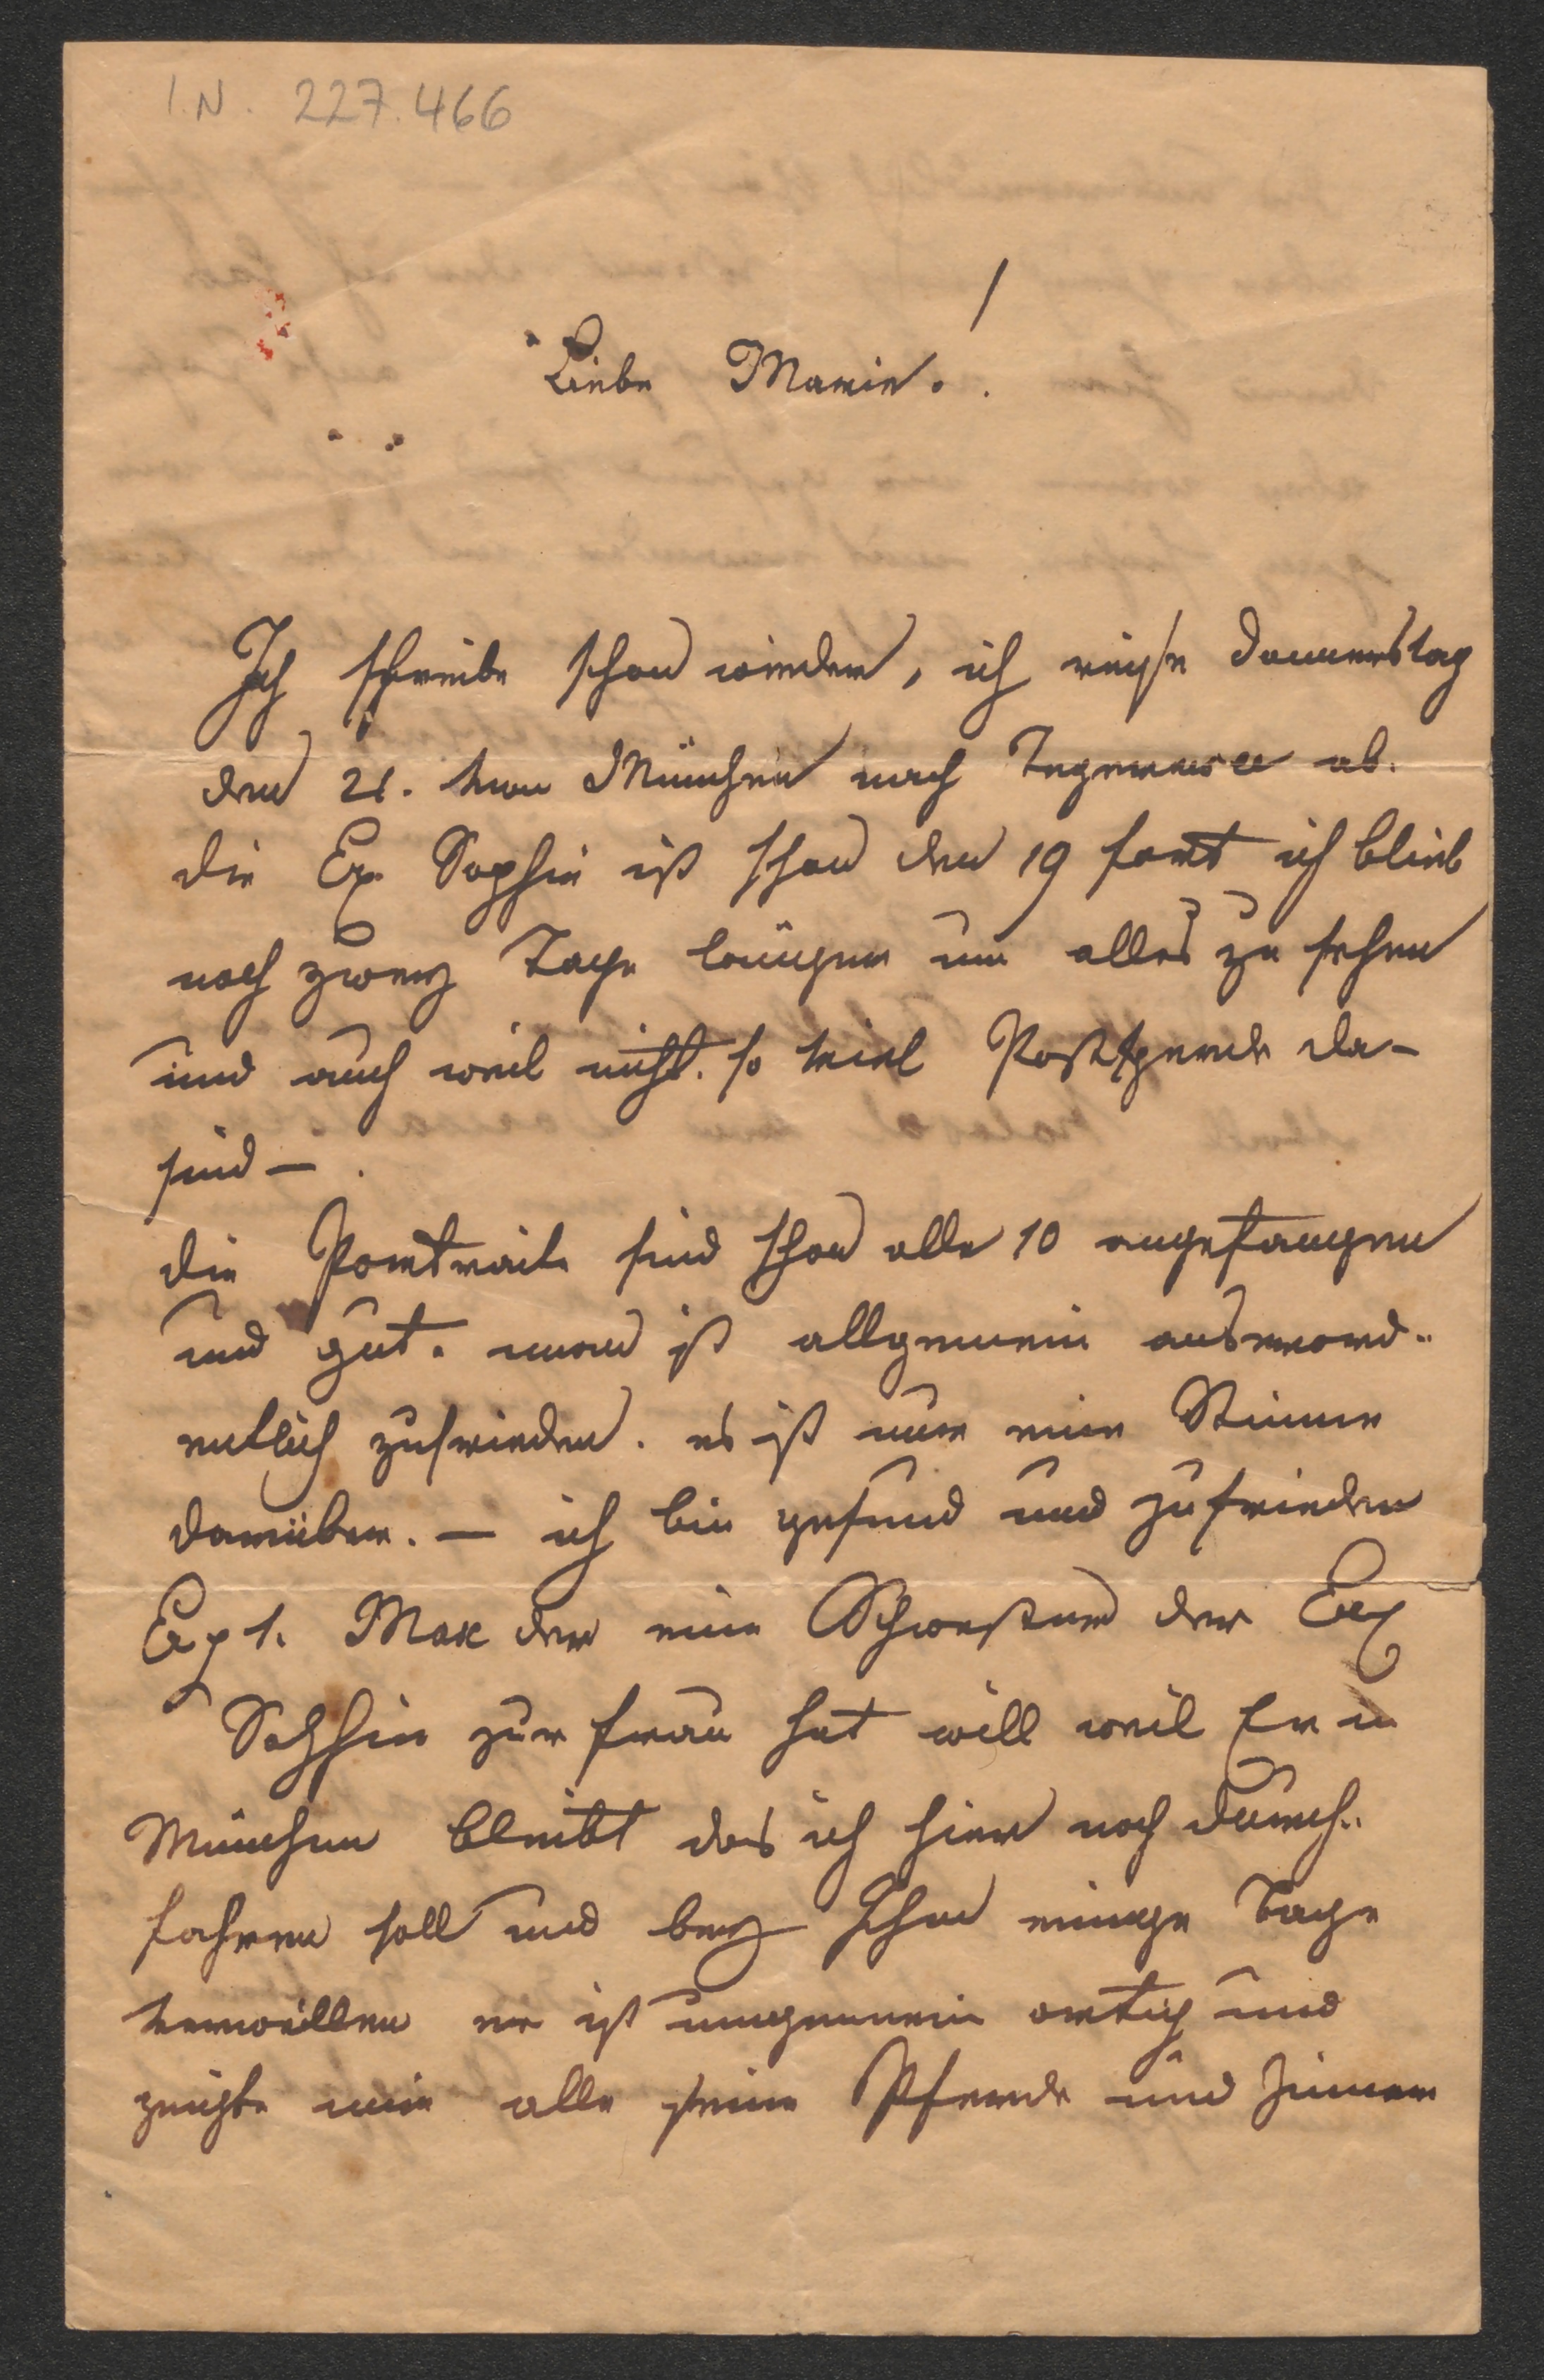 I.N. 227.466
Liebe Marie!
Ich schreibe schon wieder, ich reise Donnerstag
den 21. von München nach Tegernsee ab.
die Erz. Sophie ist schon den 19 fort ich blieb
noch zwey Tage länger um alles zu sehen
und auch weil nicht so viel Postpferde da-
sind —.
die Portraite sind schon alle 10 angefangen
und gut. man ist allgemein auserord-
entlich zufrieden. es ist nur eine Stimme
darüber. — ich bin gesund und zufrieden
Max der eine Schwester der Erz
Sophie zur Frau hat will weil Er in
München bleibt das ich hier noch durch-
fahren soll und bey Ihm einige Tage
verweillen er ist ungemein artig und
zeigte mir alle seine Pferde und Zimmer